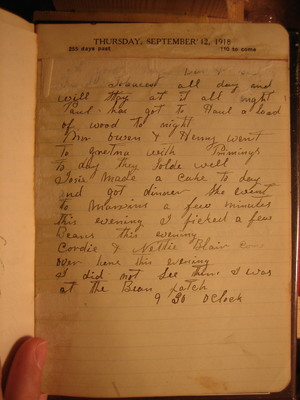 THURSDAY, SEPTEMBER 12, 1918
255 days past
110 to come
all day and
will at it all night
Paul has got to Haul a load
of wood to night
Owen & Henry went
to Gretna with
to day they Solde well
Josie Made a Cake to day
and got dinner She went
to a few minutes
this evening I picked a few
Beans this evening
Cordie & Nettie Blair
over here this evening
I did not See them I was
at the Bean patch
9 30 OClock